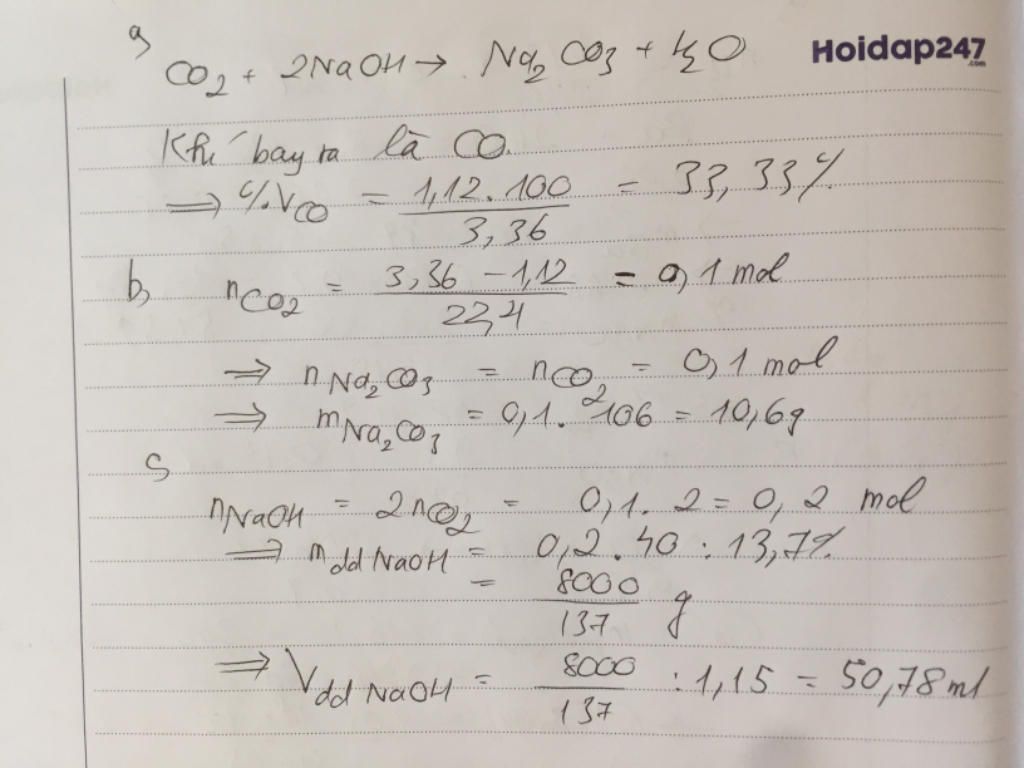 a, CO2 + 2NaOH → Na2CO3 + H2O
Hoidap247
.com
Khí bay ra là CO.
=> %VCO = 1,12.100 / 3,36 = 33,33%
b, nCO2 = 3,36 - 1,12 / 22,4 = 0,1 mol
=> nNa2CO3 = nCO2 = 0,1 mol
=> mNa2CO3 = 0,1. 106 = 10,6g
c,
nNaOH = 2nCO2 = 0,1. 2 = 0,2 mol
=> mdd NaOH = 0,2.40 : 13,7%
= 8000 / 137 g
=> Vdd NaOH = 8000 / 137 : 1,15 = 50,78 ml